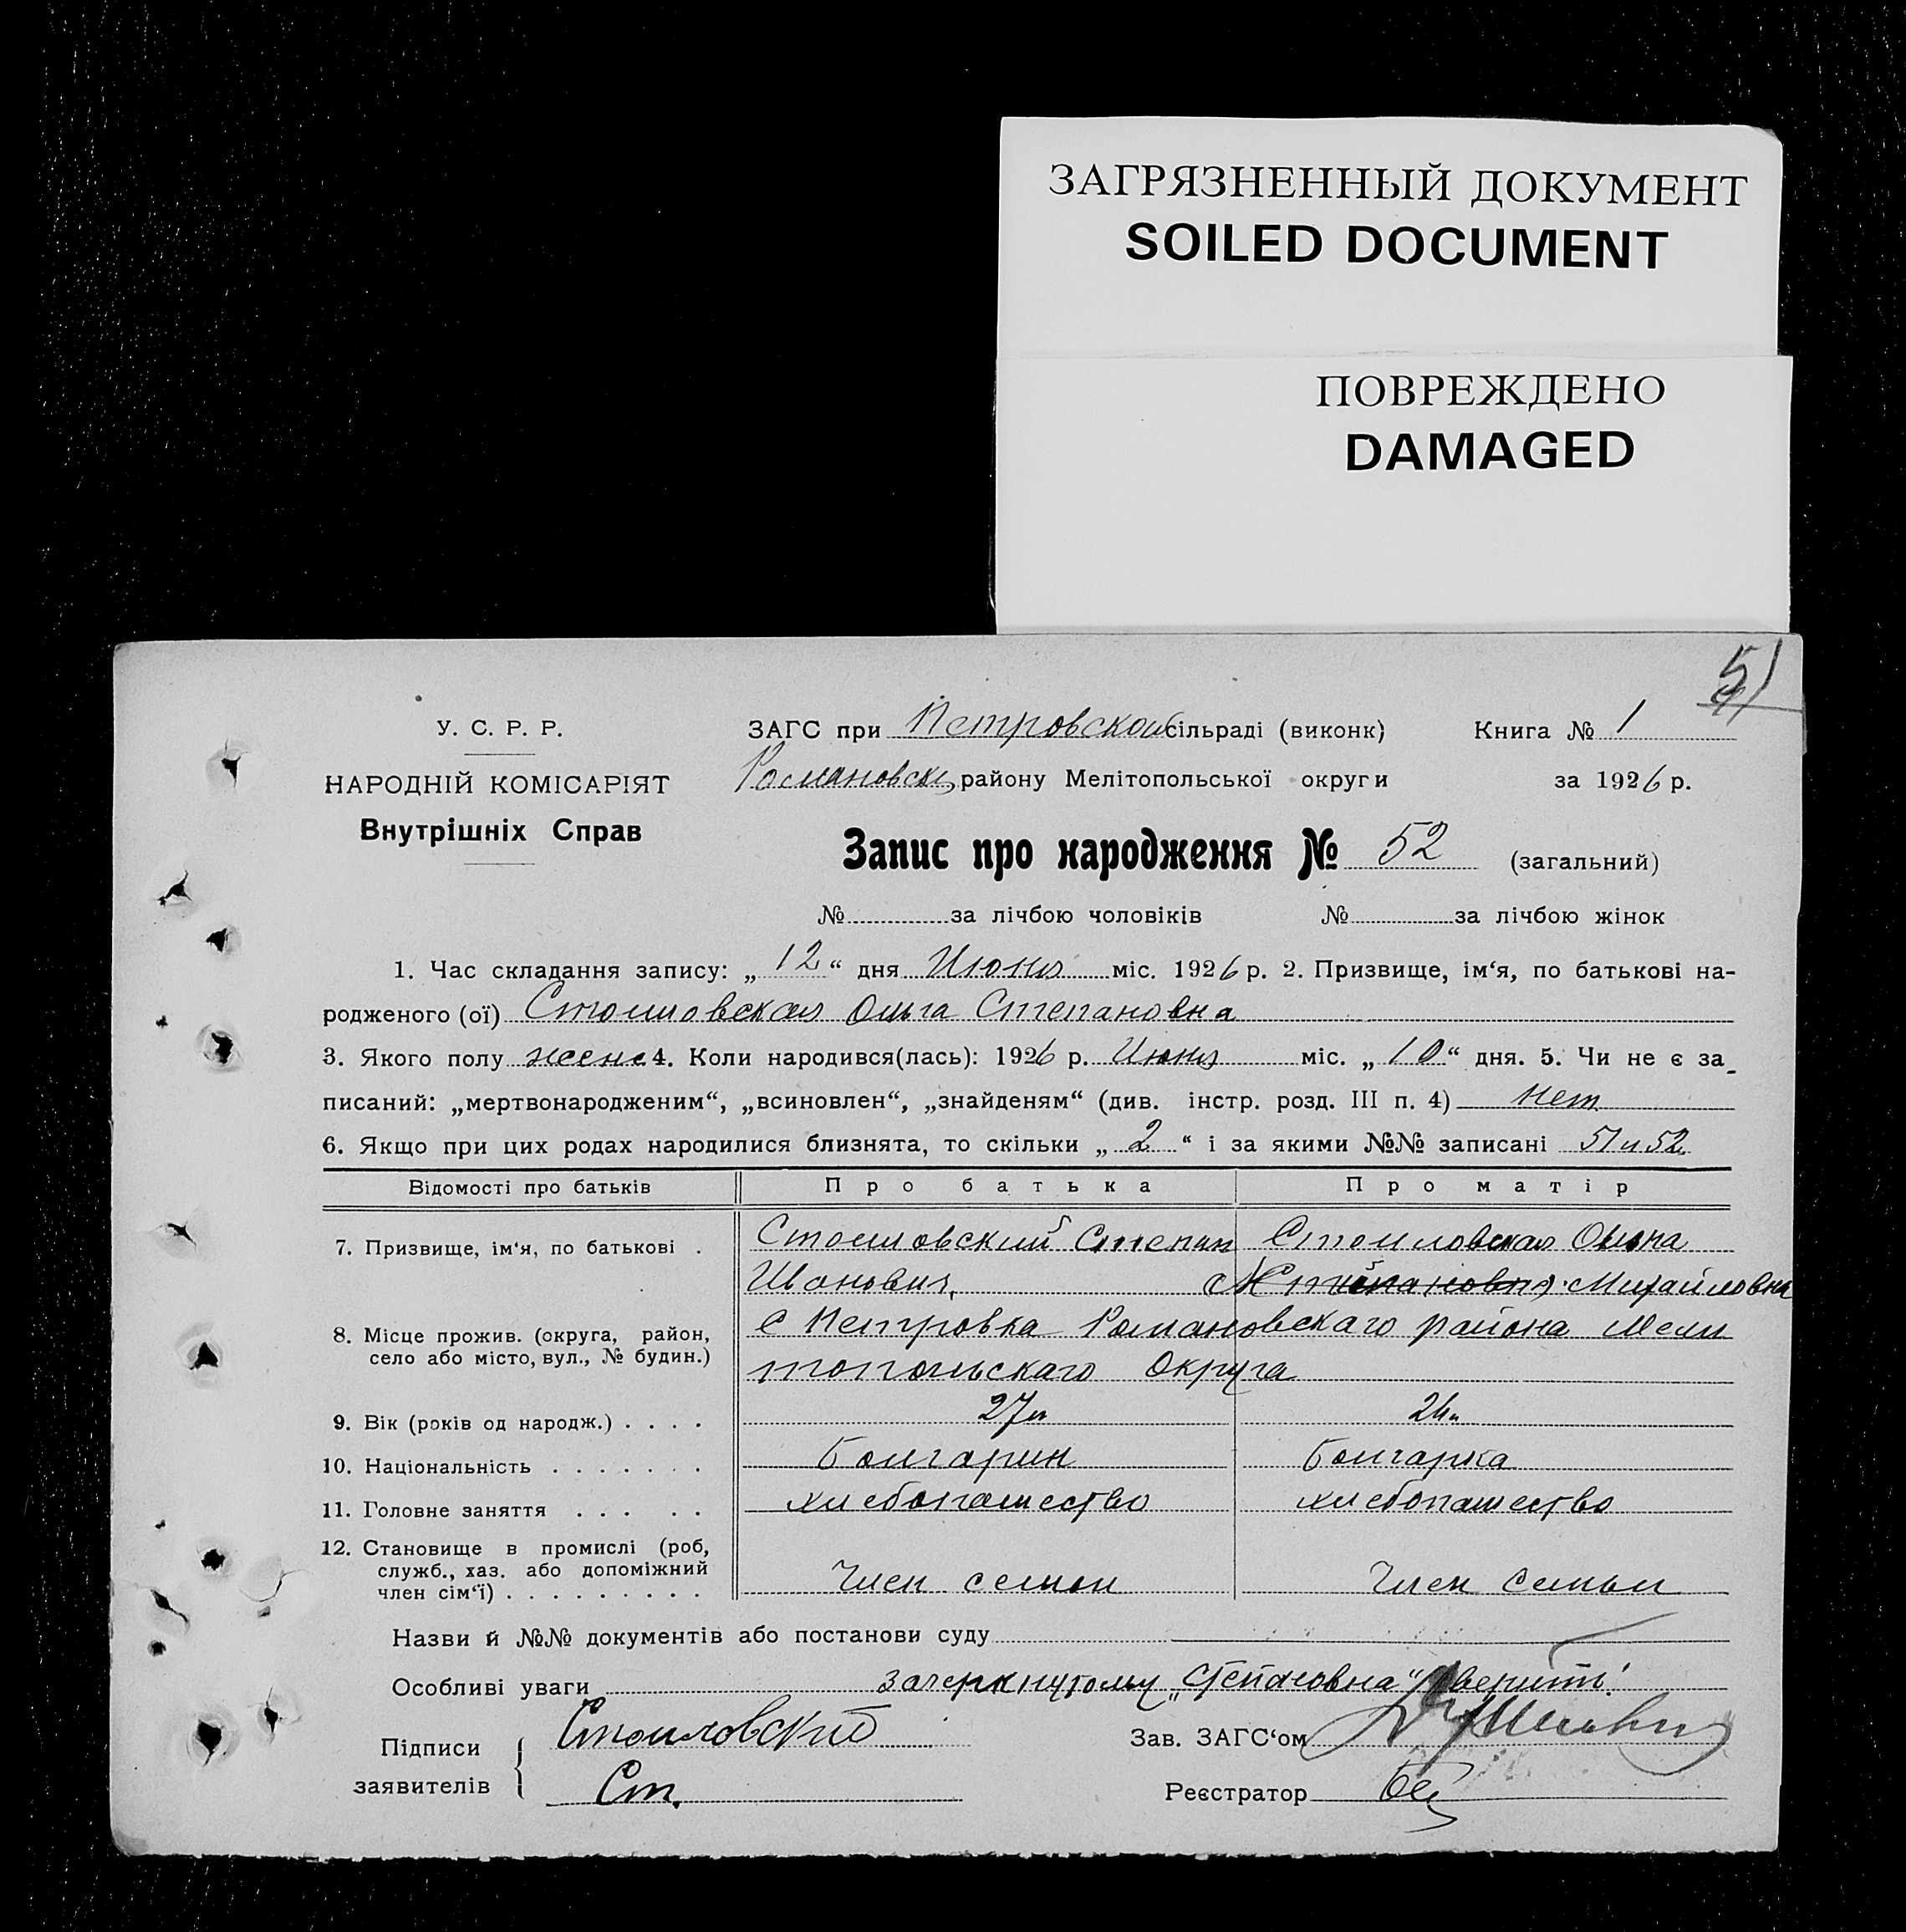 ЗАГРЯЗНЕННЫЙ ДОКУМЕНТ
SOILED DOCUMENT
ПОВРЕЖДЕНО
DAMAGED
51
У. С. Р. Р.
НАРОДНІЙ КОМІСАРІЯТ
Внутрішніх Справ
ЗАГС при Петровской сільраді (виконк) Книга № 1
Романовск району Мелітопольської округи за 1926 р.
Запис про народження № 52 (загальний)
№ за лічбою чоловіків № за лічбою жінок
1. Час складання запису: „ 12 “ дня Июня міс. 1926 р. 2. Призвище, ім‘я, по батькові на-
родженого (ої) Стоиловская Ольга Степановна
3. Якого полу женс 4. Коли народився(лась): 1926 р. Июня міс. „ 10 “ дня. 5. Чи не є за-
писаний: „мертвонародженим“, „всиновлен“, „знайденям“ (див. інстр. розд. III п. 4) нет
6. Якщо при цих родах народилися близнята, то скільки „ 2 “ і за якими №№ записані 51 и 52.
Відомості про батьків Про батька Про матір
7. Призвище, ім‘я, по батькові . Стоиловский Степан Стоиловская
Иванович, Степановна Михайловна
8. Місце прожив. (округа, район,
село або місто, вул., № будин.)
с Петровка Романовскаго района Мели
топольскаго Округа
9. Вік (років од народж.) . . . . 27 л
10. Національність . . . . . . . Болгарин Болгарка
11. Головне заняття . . . . . хлебопашество хлебопашество
12. Становище в промислі (роб,
служб., хаз. або допоміжний
член сім‘ї) . . . . . . . . . Член семьи Член семьи
Назви й №№ документів або постанови суду
Особливі уваги зачеркнутому „Степановна“ верить!
Підписи
заявителів
Стоиловский
Ст.
Зав. ЗАГС‘ом
Реєстратор